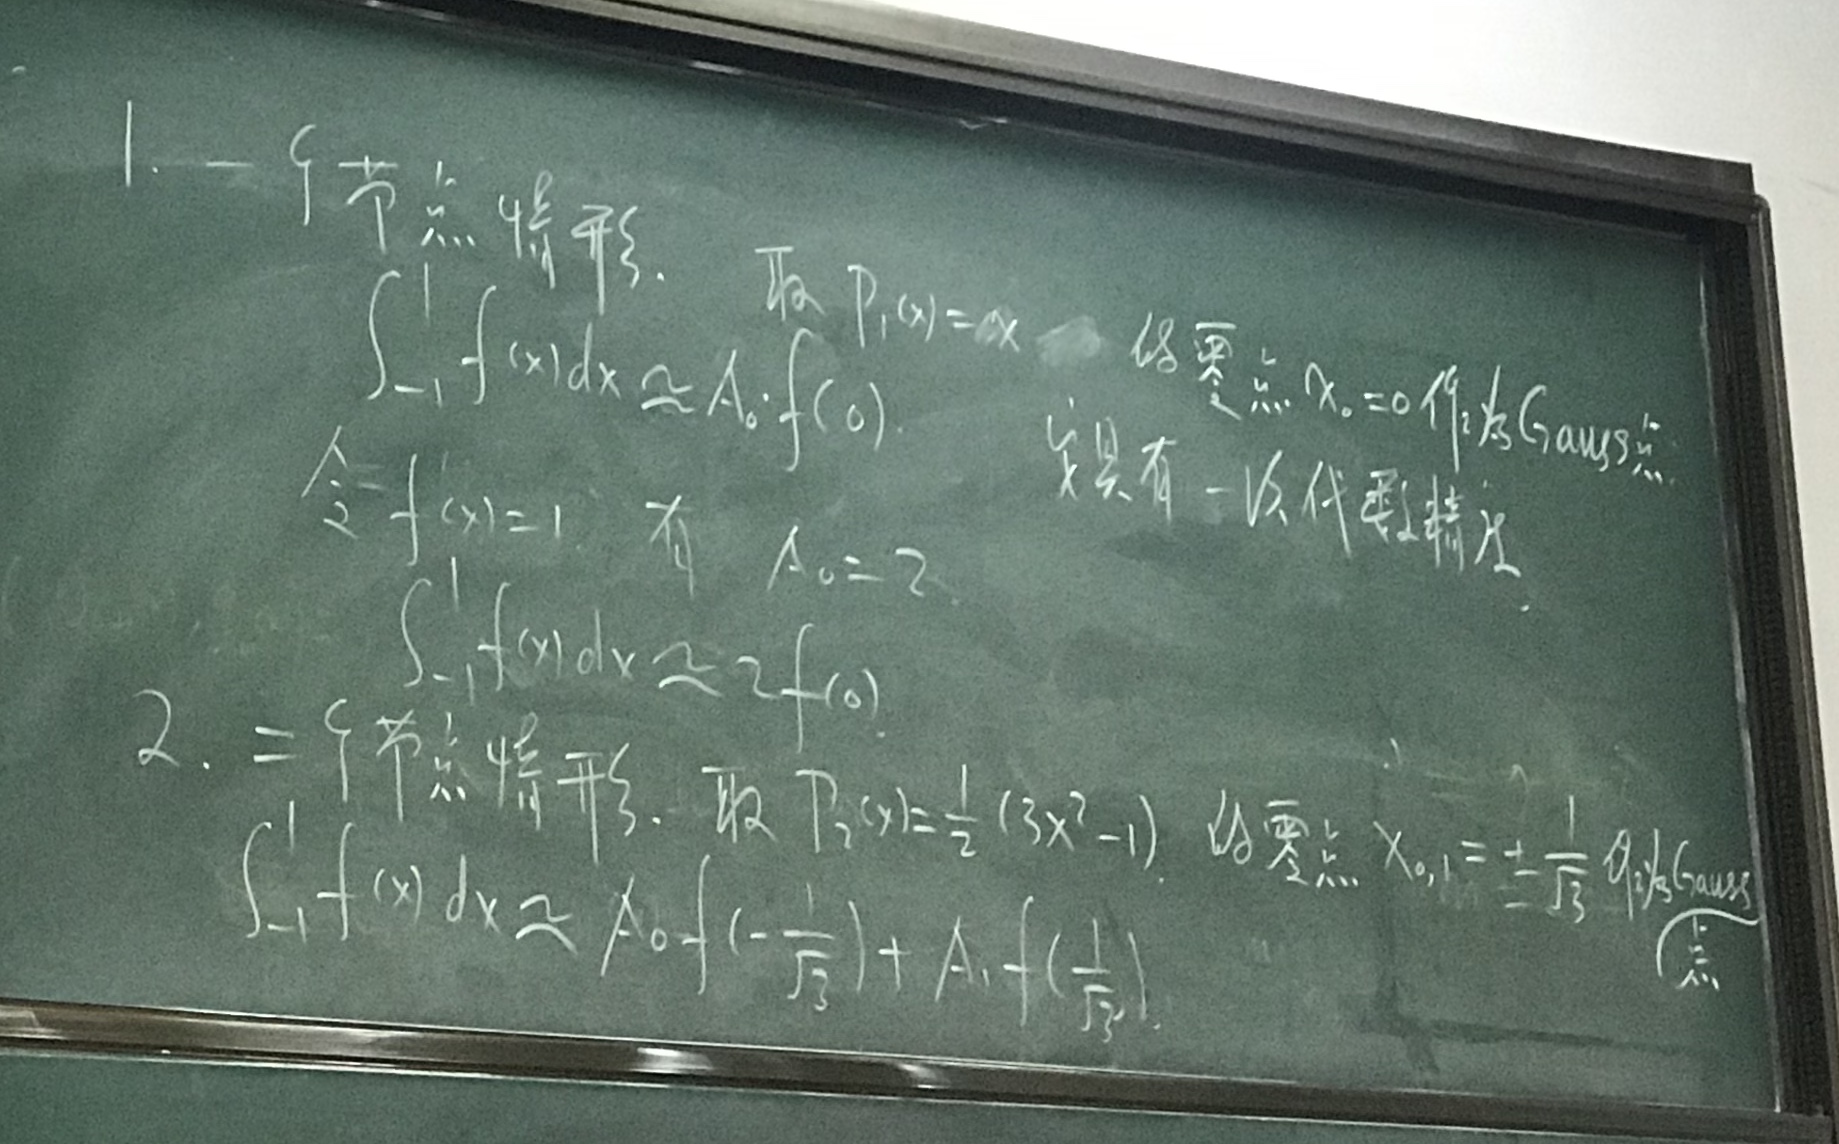 1. 一个节点情形. 取 P₁(x)=x 的零点 x₀=0 作为Gauss点
∫₋₁¹ f(x)dx ≃ A₀·f(0). 定具有一次代数精度.
令 f(x)=1 有 A₀=2
∫₋₁¹ f(x)dx ≃ 2f(0).
2. 二个节点情形. 取 P₂(x)=1/2(3x²-1). 的零点 x₀,₁=±1/√3 作为Gauss点
∫₋₁¹ f(x)dx ≃ A₀f(-1/√3)+A₁f(1/√3).